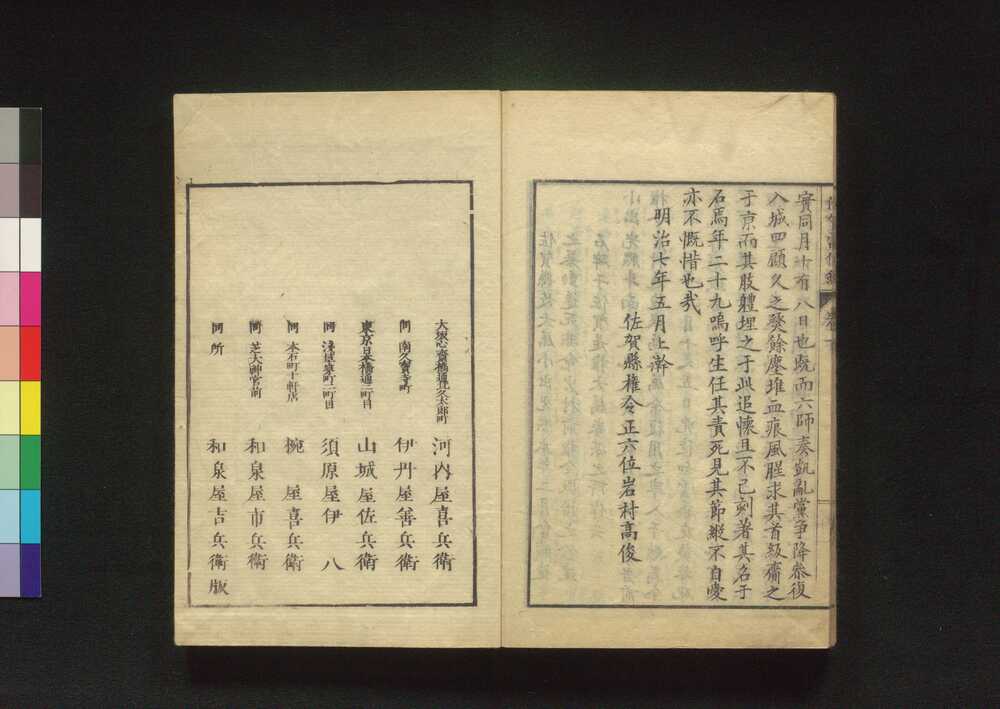 實同月十有八日也既而六師奏凱亂黨爭降恭復
入城四顧久之燹餘塵堆血痕風腥求其首級齎之
于京而其肢體埋之于此追懷且不已刻著其名于
石焉年二十九嗚呼生任其責死見其節縱不自愛
亦不慨惜也哉
明治七年五月上澣
佐賀縣權令正六位岩村高俊
大坂心齋橋通北久太郎町 河内屋喜兵衛
同 南久寶寺町 伊丹屋善兵衛
東京日本橋通二町目 山城屋佐兵衛
同 淺草茅町二町目 須原屋伊八
同 本石町十軒店 椀屋喜兵衛
同 芝大神宮前 和泉屋市兵衛
同所 和泉屋吉兵衛版